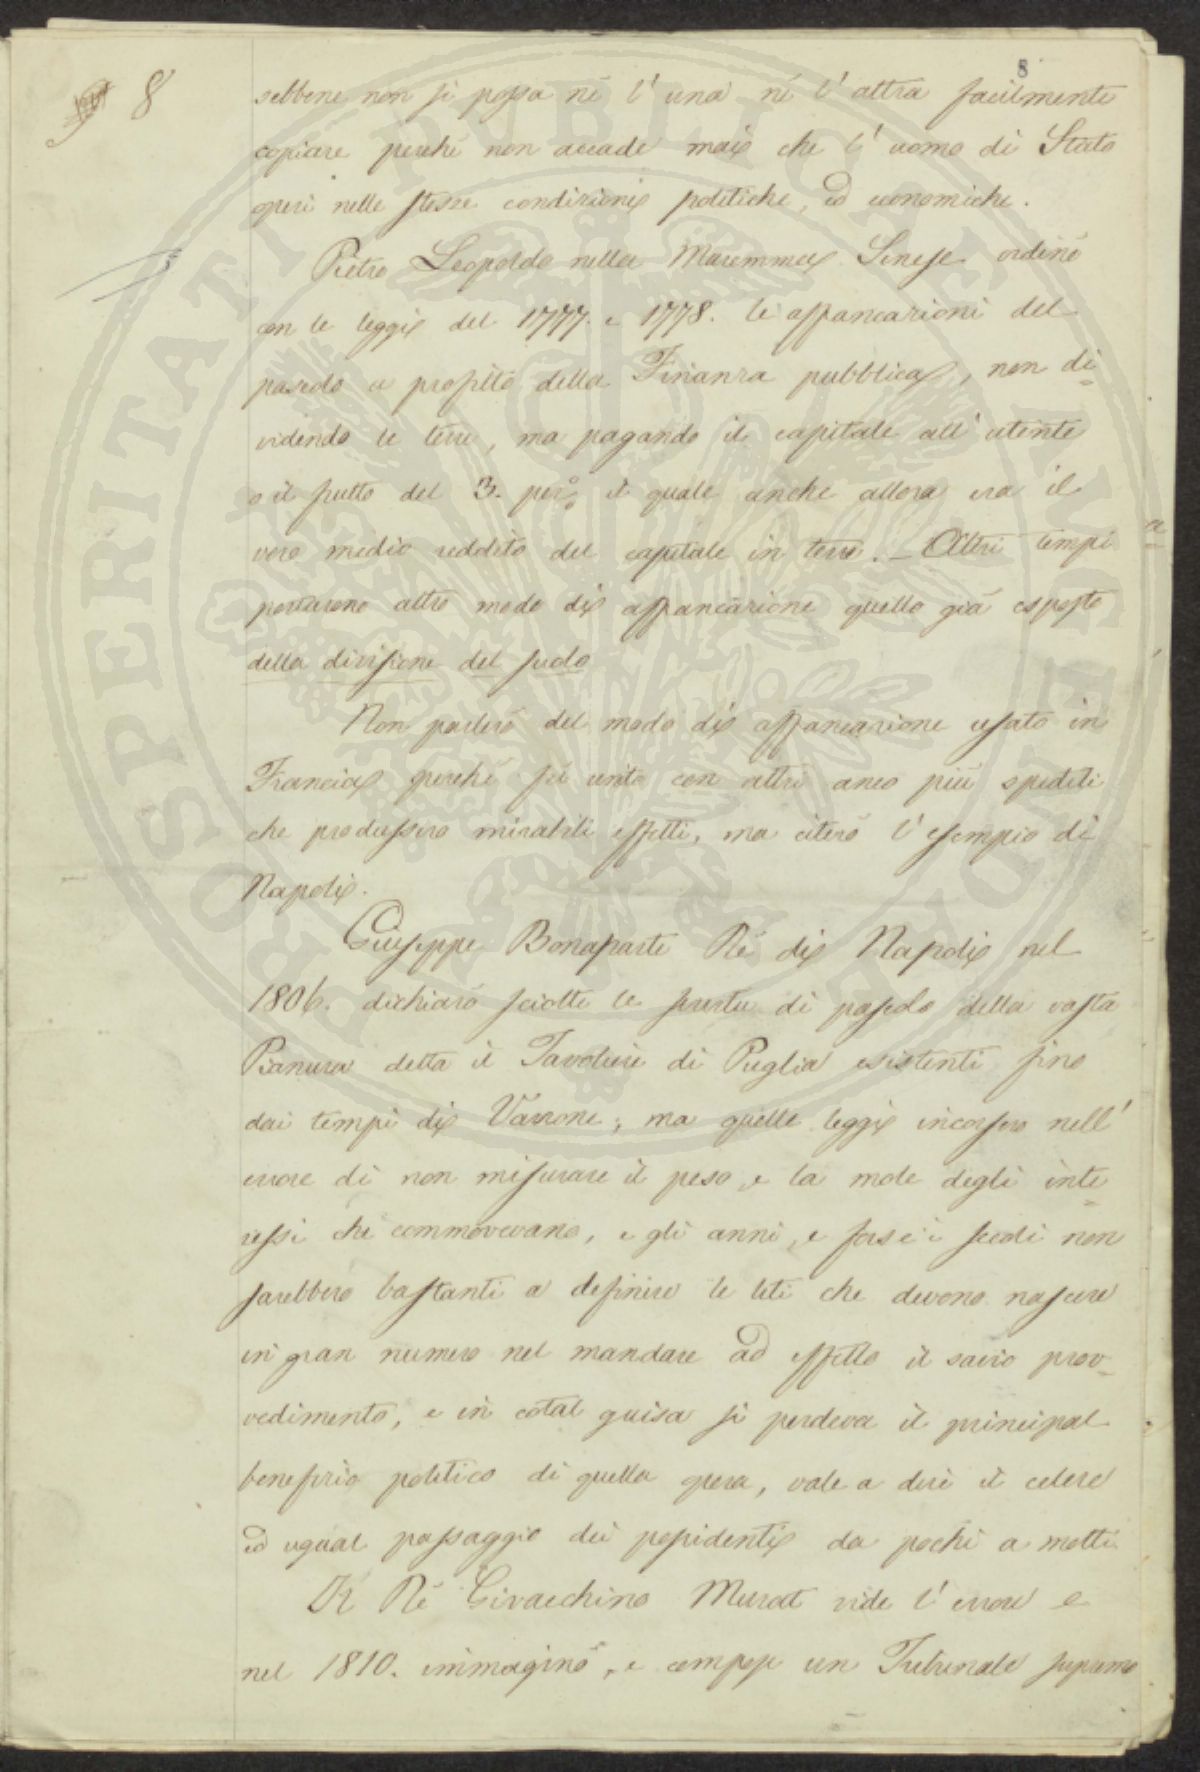 8
8
sebbene non si possa né l'una né l'altra facilmente
copiare perché non accade mai che l'uomo di Stato
operi nelle stesse condizioni politiche, ed economiche.
Pietro Leopoldo nella Maremma Sinese ordinò
con le leggi del 1777. e 1778. le affrancazioni del
pascolo a profitto della Finanza pubblica, non di=
videndo le terre, ma pagando il capitale all'utente
o il frutto del 3. per % il quale anche allora era il
vero medio reddito del capitale in terre. – Altri tempi
portarono altro modo di affrancazione quello già esposto
della divisione del suolo
Non parlerò del modo di affrancazione usato in
Francia perché fu unito con altri anco più spediti
che produssero mirabili effetti, ma citerò l'esempio di
Napoli.
Giuseppe Bonaparte Ré di Napoli nel
1806. dichiarò sciolte le servitù di pascolo della vasta
Pianura detta il Tavoliere di Puglia esistenti fino
dai tempi di Varrone; ma quelle leggi incorsero nell'
errore di non misurare il peso, e la mole degli inte=
ressi che commovevano, e gli anni, e forse i secoli non
sarebbero bastanti a definire le liti che devono nascere
in gran numero nel mandare ad effetto il savio prov=
vedimento, e in cotal guisa si perdeva il principal
benefizio politico di quella opera, vale a dire il celere
ed ugual passaggio dei possidenti da pochi a molti.
Il Ré Givacchino Murat vide l'errore e
nel 1810. immaginò, e compose un Tribunale supremo
PROSPERITATI PUBLICAE AUGENDAE